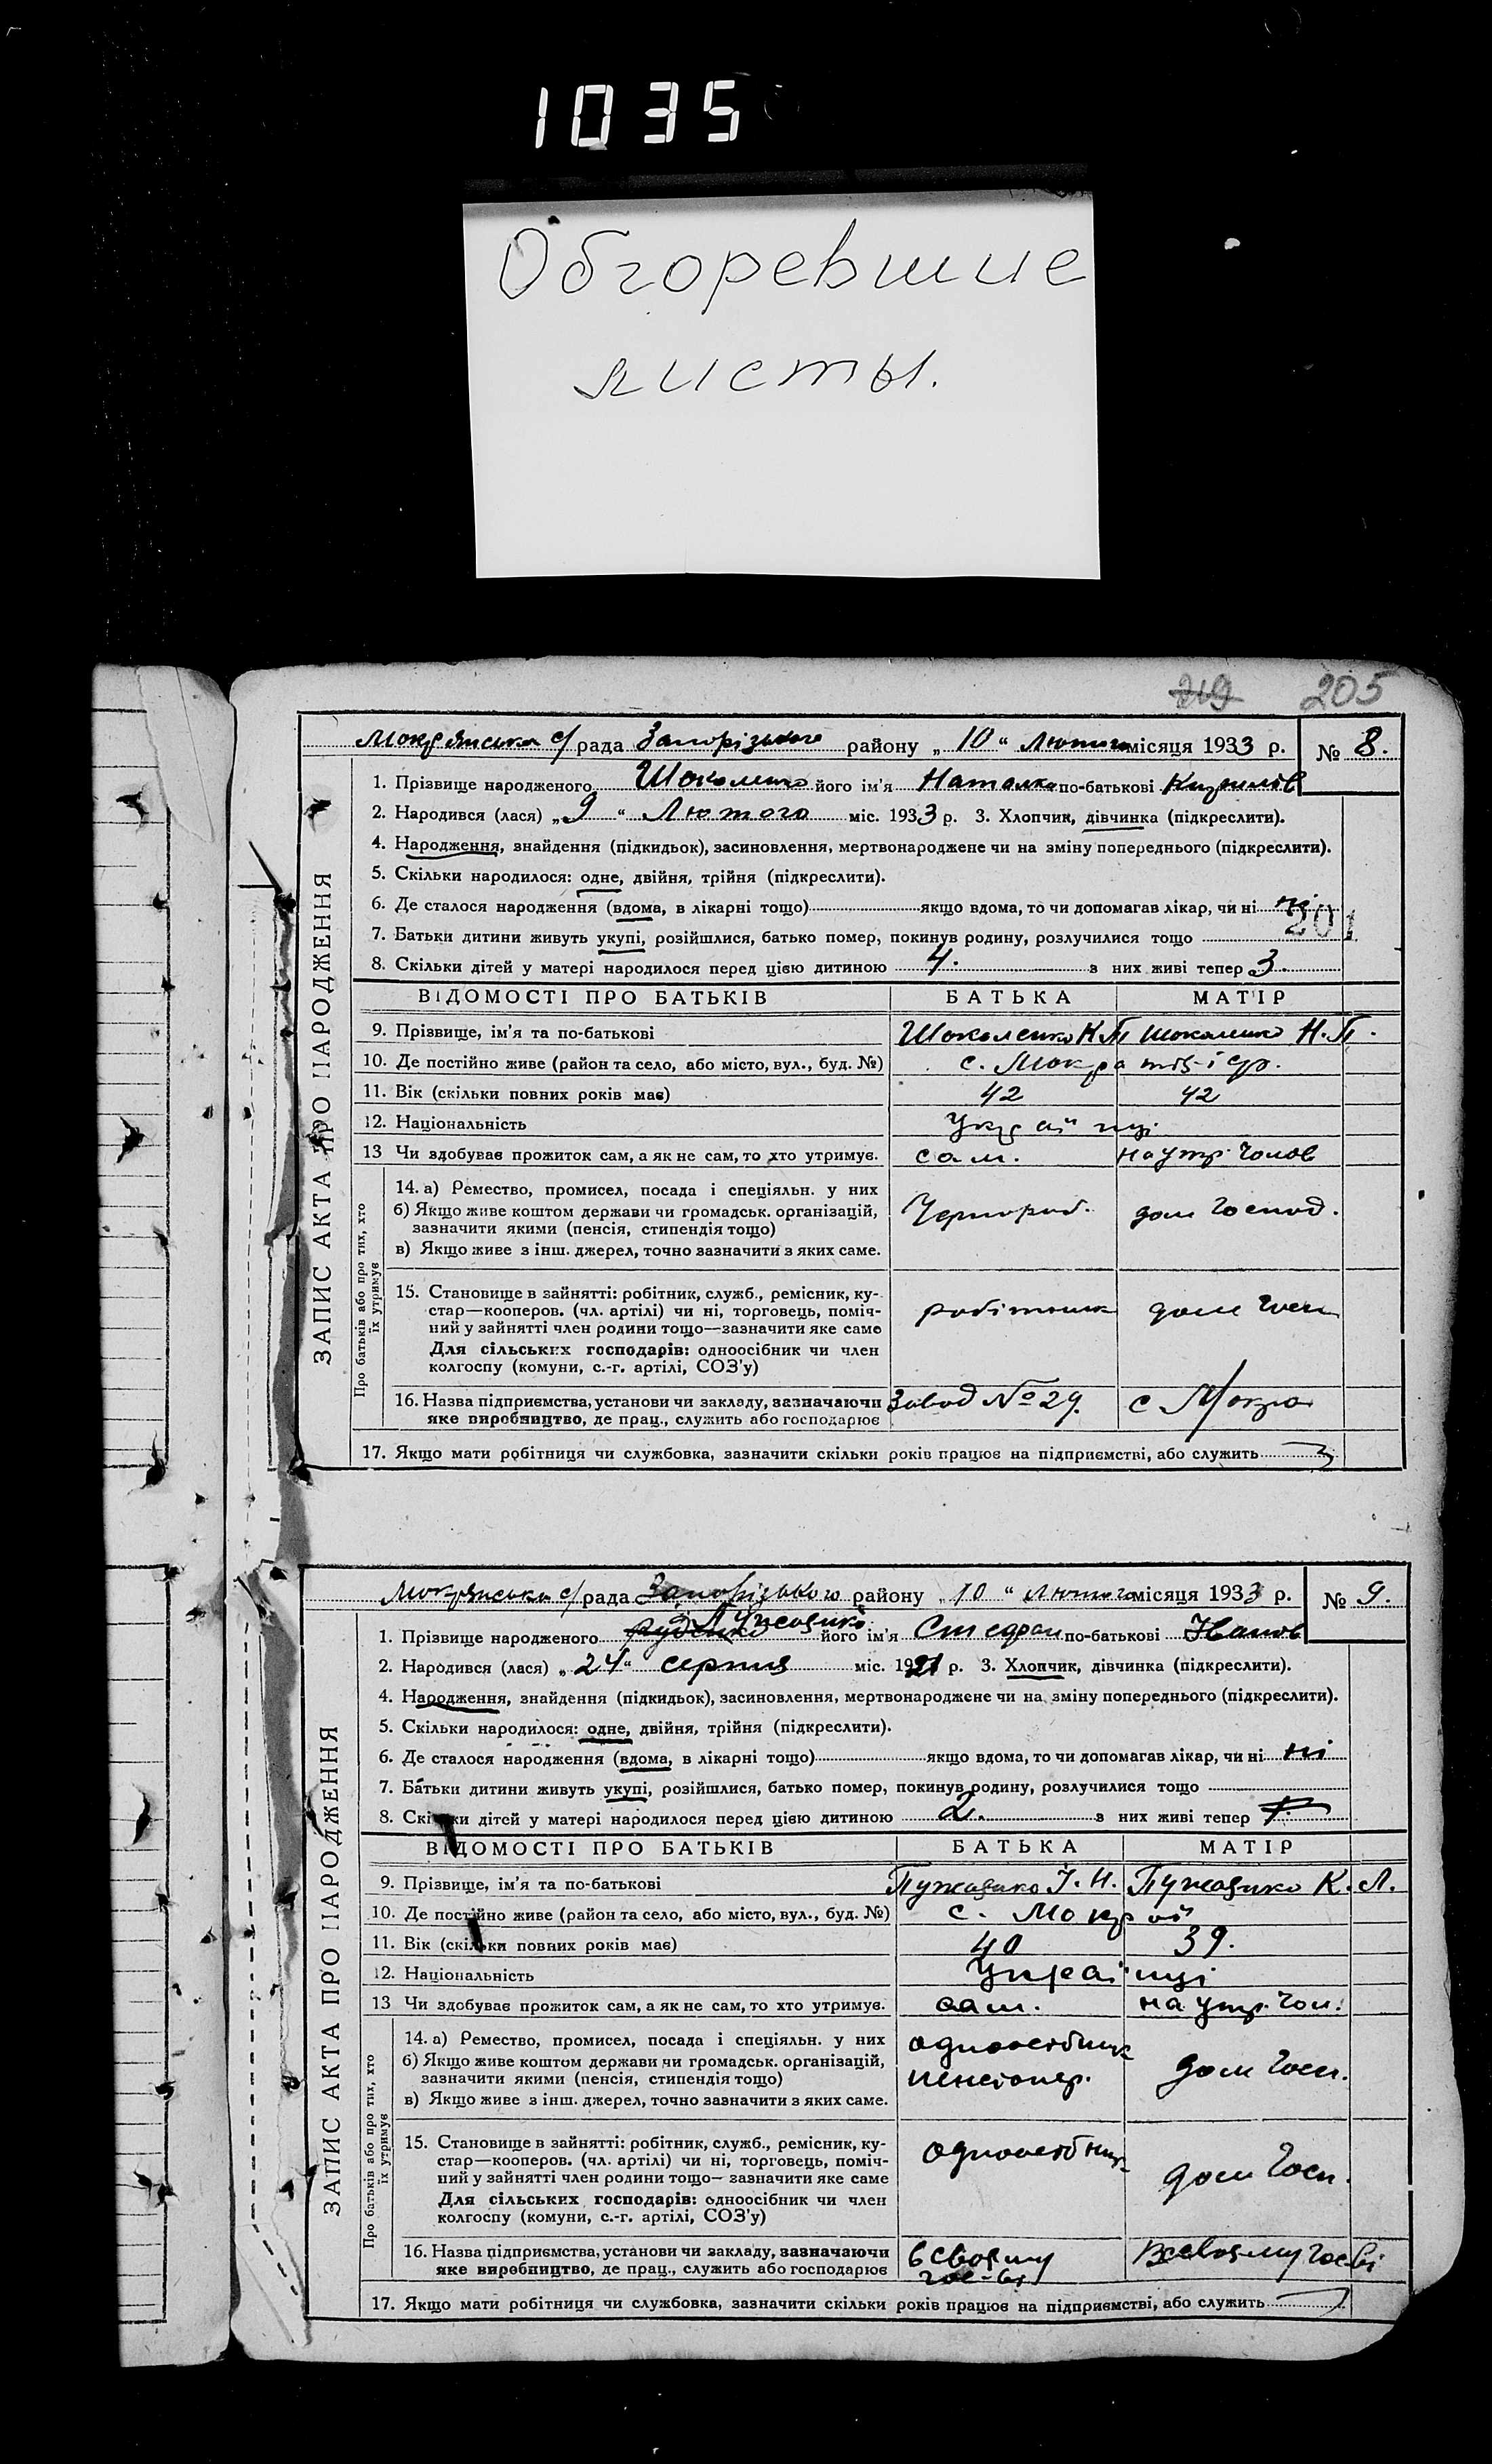 1035
Обгоревшие
листы.
219 205
Мокрянська с/рада Запорізького району „10“ Лютого місяця 1933 р. № 8.
ЗАПИС АКТА ПРО НАРОДЖЕННЯ
1. Прізвище народженого Шоколенко його ім’я Наталка по-батькові Кирилів
2. Народився (лася) „9“ Лютого міс. 1933 р. 3. Хлопчик, дівчинка (підкреслити).
4. Народження, знайдення (підкидьок), засиновлення, мертвонароджене чи на зміну попереднього (підкреслити).
5. Скільки народилося: одне, двійня, трійня (підкреслити).
6. Де сталося народження (вдома, в лікарні тощо) якщо вдома, то чи допомагав лікар, чи ні ні
201
7. Батьки дитини живуть укупі, розійшлися, батько помер, покинув родину, розлучилися тощо
8. Скільки дітей у матері народилося перед цією дитиною 4. з них живі тепер 3.
ВІДОМОСТІ ПРО БАТЬКІВ БАТЬКА МАТІР
9. Прізвище, ім’я та по-батькові Шоколенко К.П Шоколенко Н.П.
10. Де постійно живе (район та село, або місто, вул., буд. №) с. Мокра
11. Вік (скільки повних років має) 42 42
12. Національність Українці
13 Чи здобуває прожиток сам, а як не сам, то хто утримує. сам. на утр. Чолов
Про батьків або про тих, хто їх утримує
14. а) Ремество, промисел, посада і спеціяльн. у них
б) Якщо живе коштом держави чи громадськ. організацій, Чернороб. дом Господ.
зазначити якими (пенсія, стипендія тощо)
в) Якщо живе з інш. джерел, точно зазначити з яких саме.
15. Становище в зайнятті: робітник, служб., ремісник, ку-
стар—кооперов. (чл. артілі) чи ні, торговець, поміч- робітник дом Госп
ний у зайнятті член родини тощо—зазначити яке саме
Для сільських господарів: одноосібник чи член
колгоспу (комуни, с.-г. артілі, СОЗ’у)
16. Назва підприємства, установи чи закладу, зазначаючи Завод № 29. с Мокра
яке виробництво, де прац., служить або господарює
17. Якщо мати робітниця чи службовка, зазначити скільки років працює на підприємстві, або служить
Мокрянська с/рада Запорізького району „10“ Лютого місяця 1933 р. № 9.
ЗАПИС АКТА ПРО НАРОДЖЕННЯ
1. Прізвище народженого його ім’я Стефан по-батькові Іванов
2. Народився (лася) „24“ серпня міс. 1921 р. 3. Хлопчик, дівчинка (підкреслити).
4. Народження, знайдення (підкидьок), засиновлення, мертвонароджене чи на зміну попереднього (підкреслити).
5. Скільки народилося: одне, двійня, трійня (підкреслити).
6. Де сталося народження (вдома, в лікарні тощо) якщо вдома, то чи допомагав лікар, чи ні ні
7. Батьки дитини живуть укупі, розійшлися, батько помер, покинув родину, розлучилися тощо
8. Скільки дітей у матері народилося перед цією дитиною 2. з них живі тепер
ВІДОМОСТІ ПРО БАТЬКІВ БАТЬКА МАТІР
9. Прізвище, ім’я та по-батькові І. Н. К. Л.
10. Де постійно живе (район та село, або місто, вул., буд. №) с. Мокрой
11. Вік (скільки повних років має) 40 39.
12. Національність Українці
13 Чи здобуває прожиток сам, а як не сам, то хто утримує. сам. на утр. Чол.
Про батьків або про тих, хто їх утримує
14. а) Ремество, промисел, посада і спеціяльн. у них одноосібник
б) Якщо живе коштом держави чи громадськ. організацій, дом Госп.
зазначити якими (пенсія, стипендія тощо) пенсіонер.
в) Якщо живе з інш. джерел, точно зазначити з яких саме.
15. Становище в зайнятті: робітник, служб., ремісник, ку- одноосібник
стар—кооперов. (чл. артілі) чи ні, торговець, поміч- дом Госп.
ний у зайнятті член родини тощо—зазначити яке саме
Для сільських господарів: одноосібник чи член
колгоспу (комуни, с.-г. артілі, СОЗ’у)
16. Назва підприємства, установи чи закладу, зазначаючи в своєму Всвоєму гос-ві
яке виробництво, де прац., служить або господарює гос-ві
17. Якщо мати робітниця чи службовка, зазначити скільки років працює на підприємстві, або служить